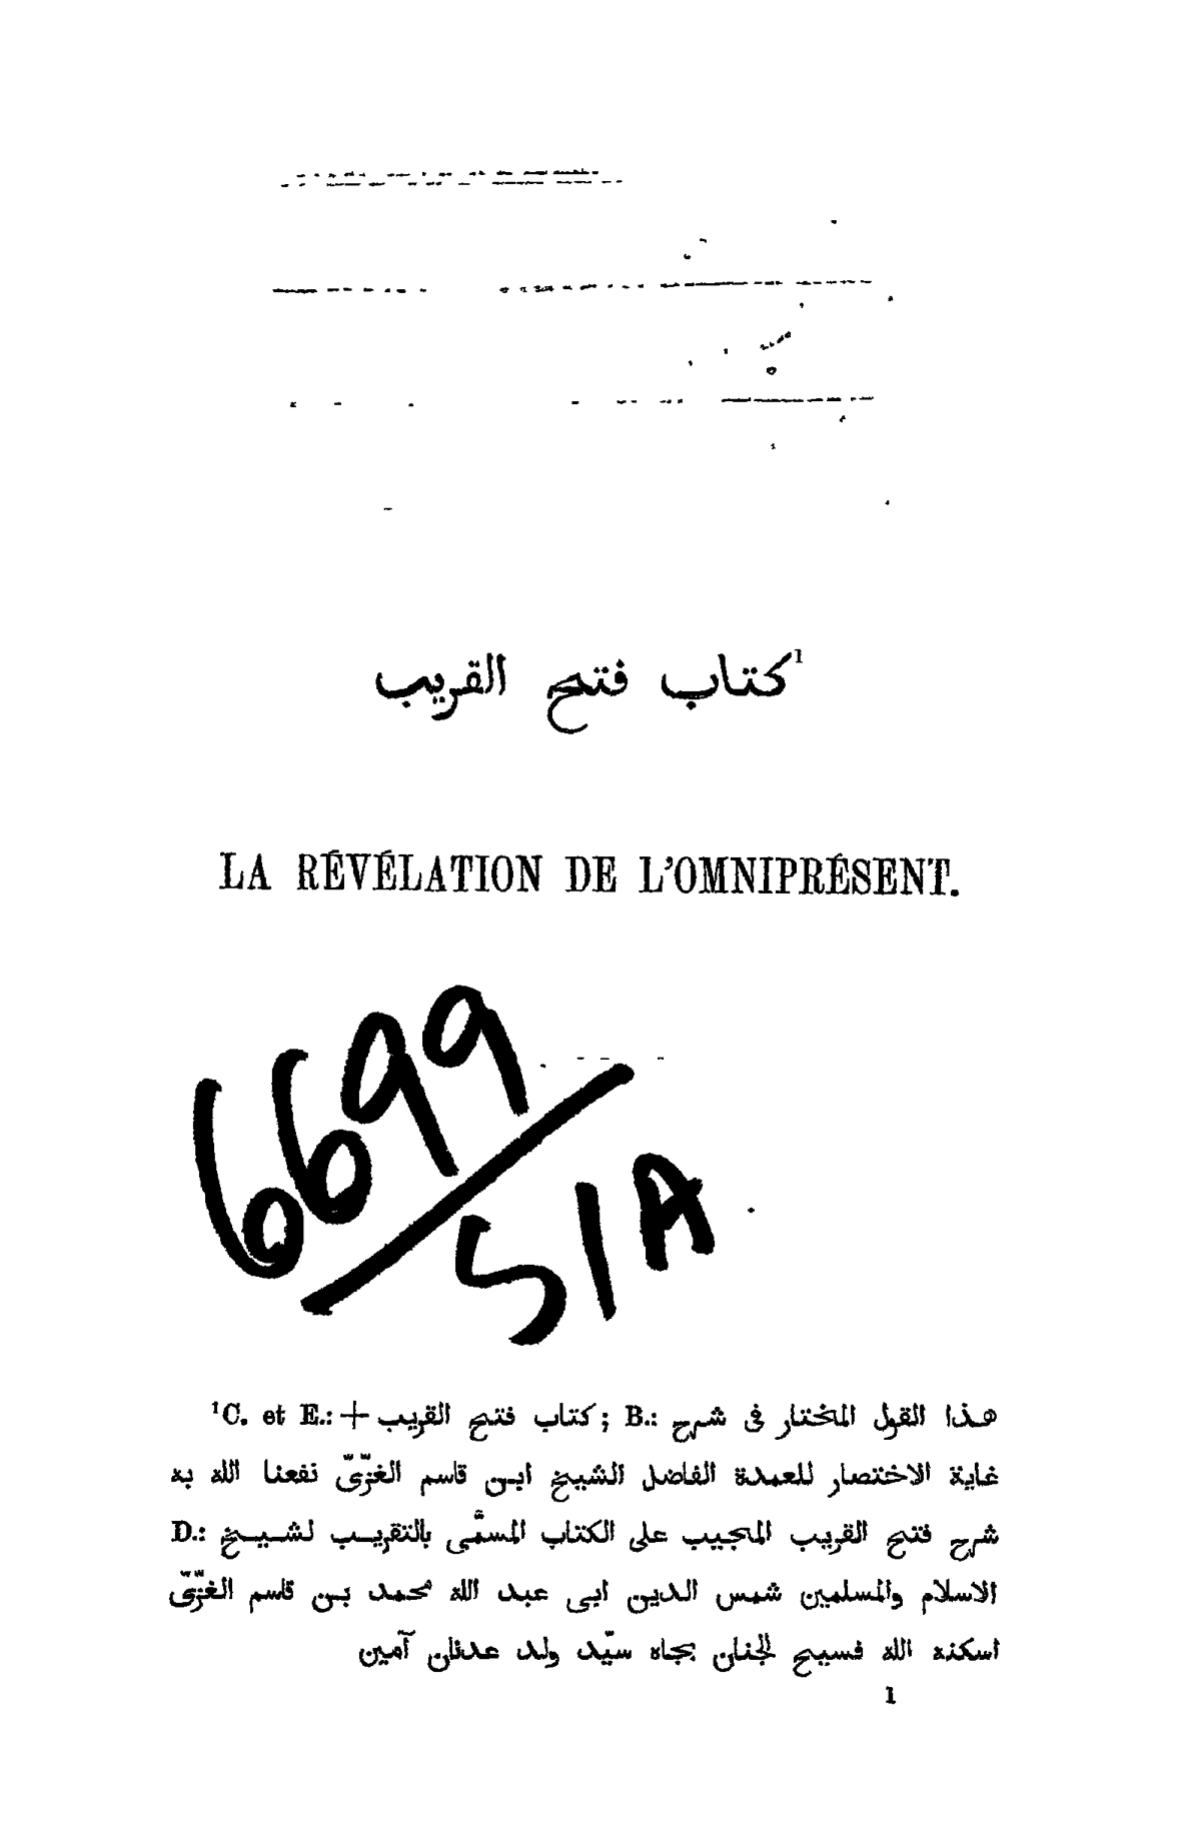 كتاب فتح القريب¹
LA RÉVÉLATION DE L'OMNIPRÉSENT.
6699
51A
¹C. et E.: + كتاب فتح القريب; B.: هذا القول المختار فى شرح
غاية الاختصار للعمدة الفاضل الشيخ ابن قاسم الغزّىّ نفعنا الله به
D.: شرح فتح القريب المجيب على الكتاب المسمَّى بالتقريب لشيخ
الاسلام والمسلمين شمس الدين ابى عبد الله محمد بن قاسم الغزّىّ
اسكنه الله فسيح الجنان بجاه سيّد ولد عدنان آمين
1